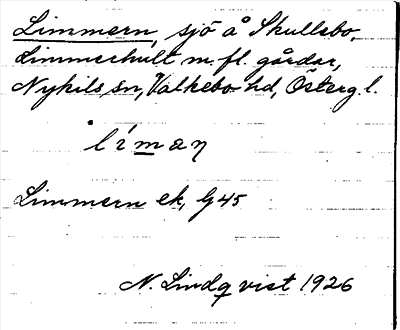 Limmern, sjö å Skullebo,
Limmerhult m. fl. gårdar,
Nykils sn, Valkebo hd, Österg. l.
lìmaŋ
Limmern ek, G45
N. Lindqvist 1926